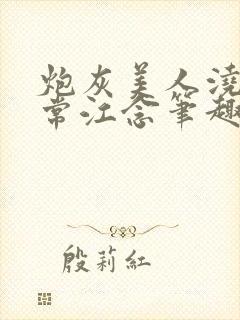 炮灰美人澆
常江念筆趣
殷莉紅